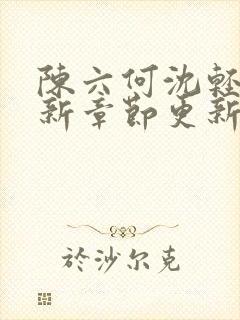 陳六何沈軽
新章節更新
於沙尔克